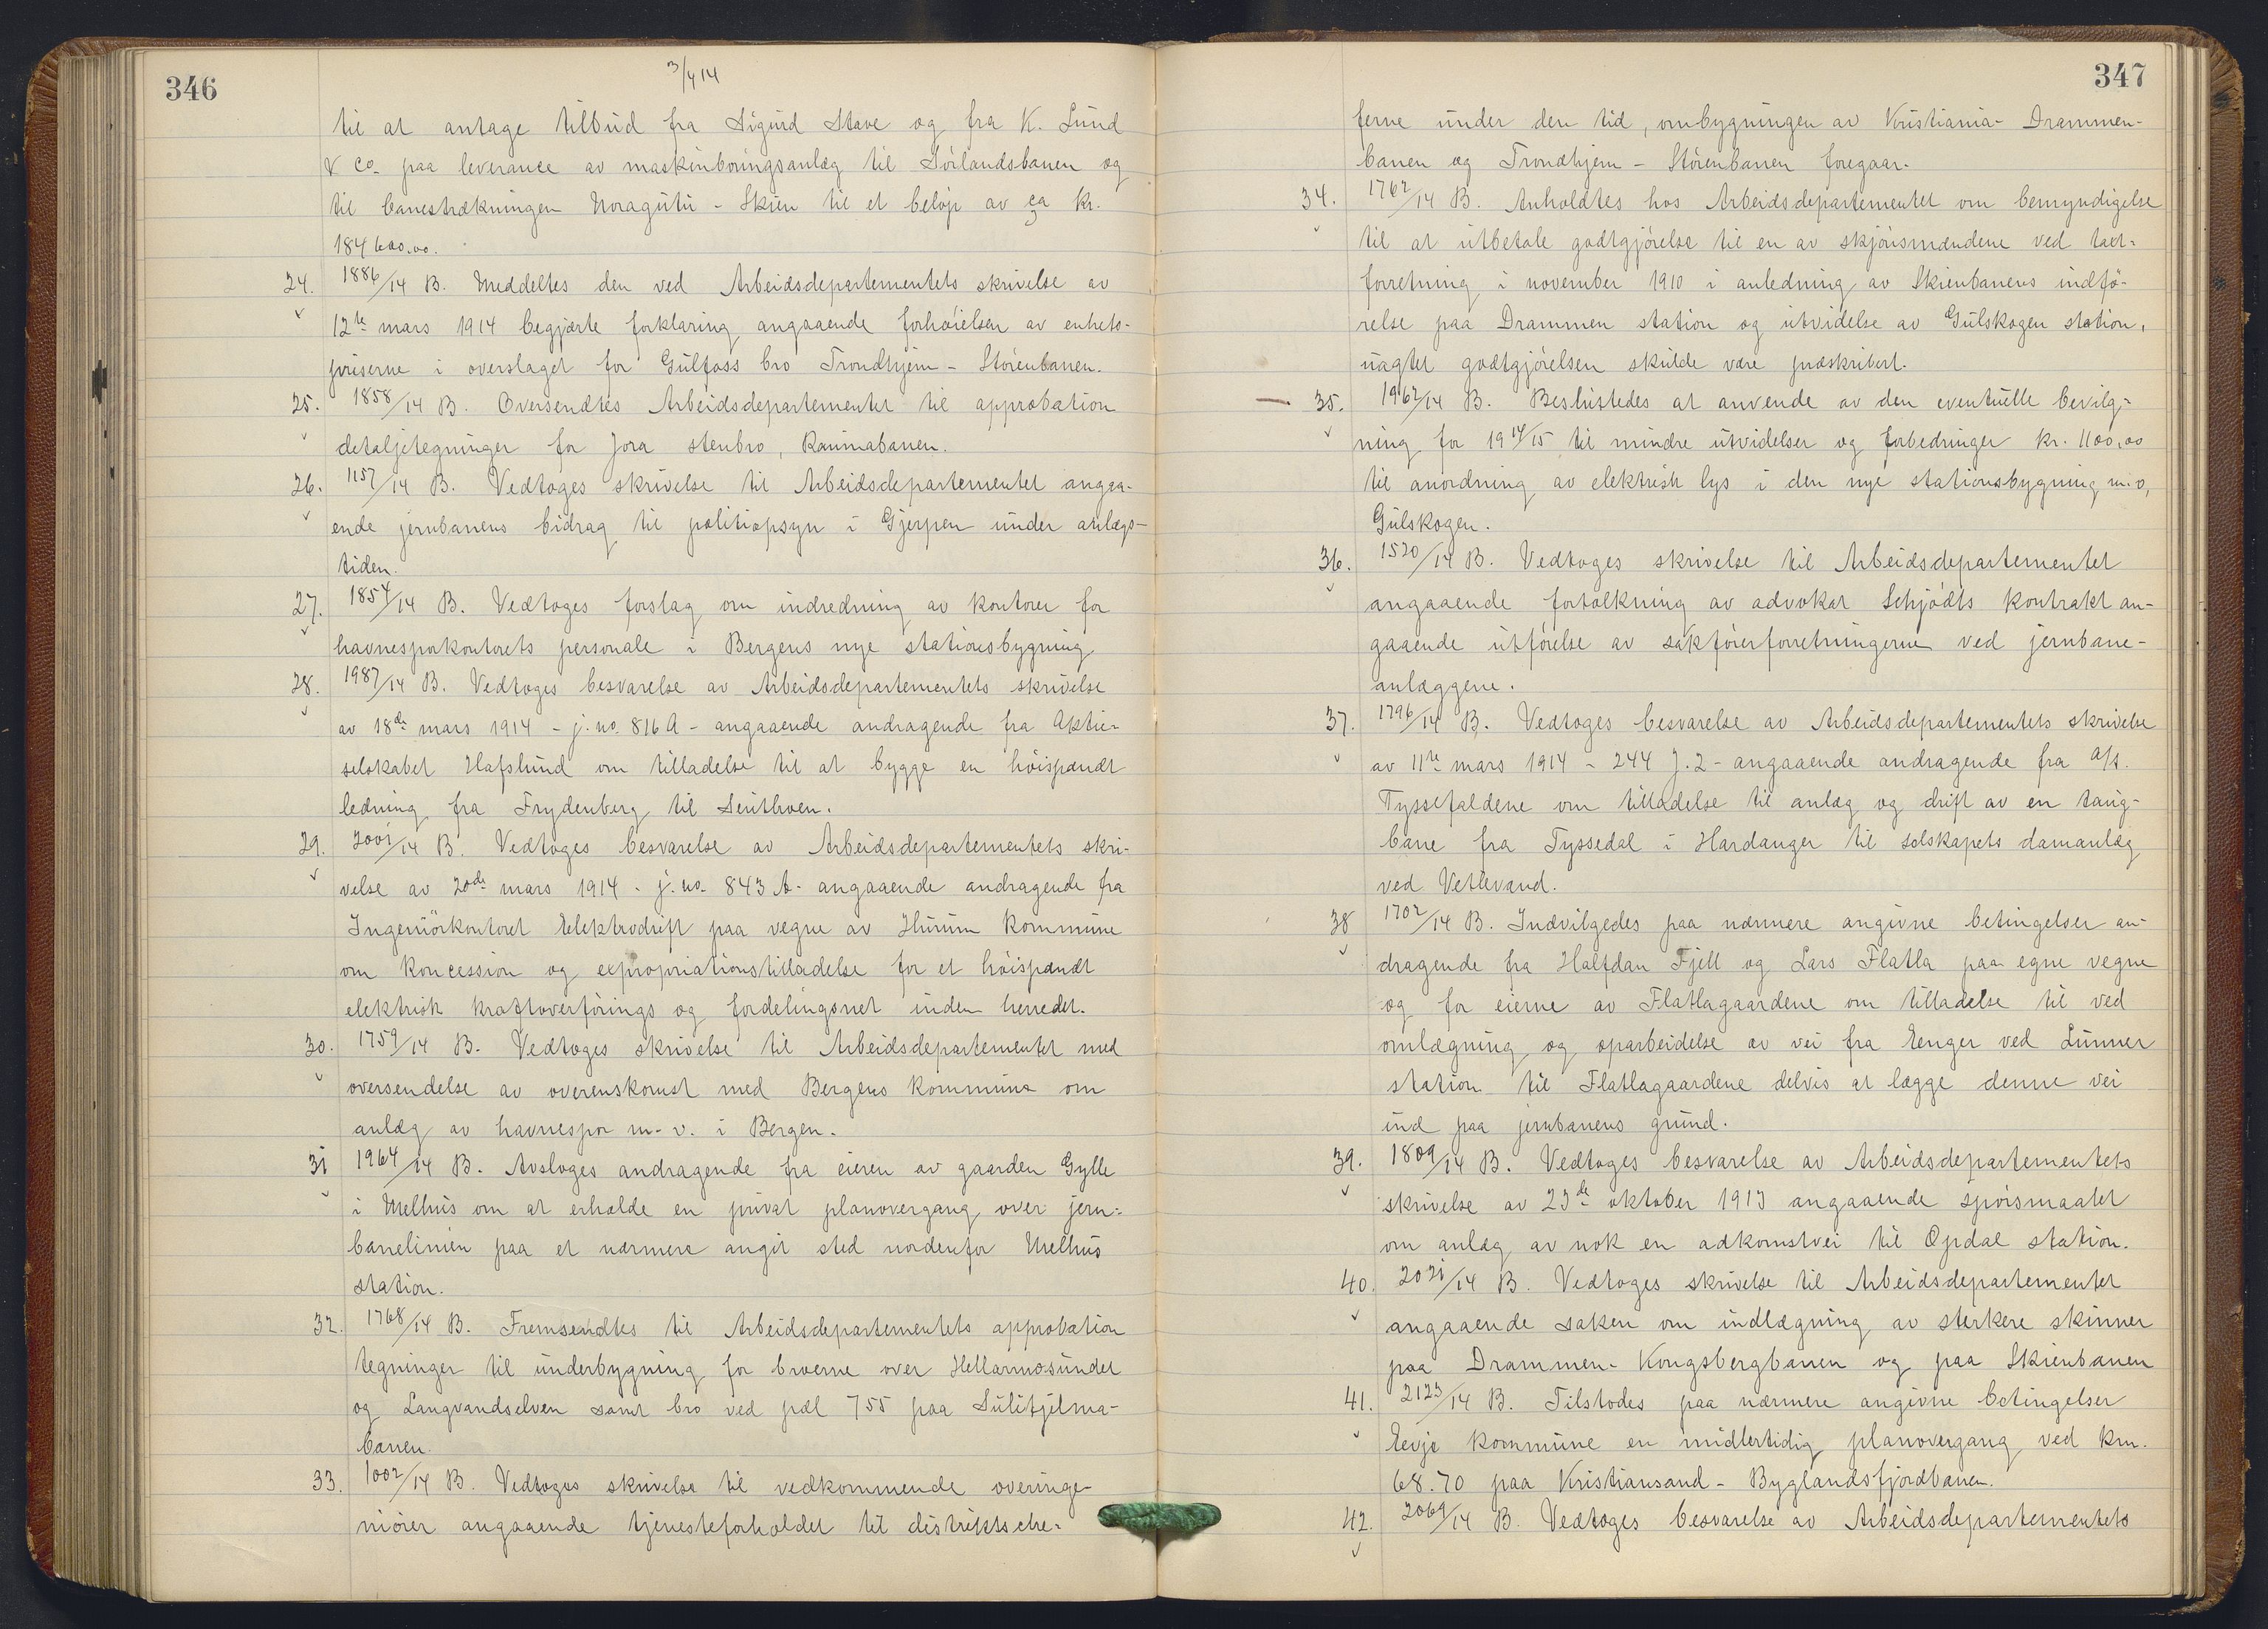 346
3/4 14
til at antage tilbud fra Sigurd Stave og fra K. Lund
& Co. paa leverance av maskinboringsanlæg til Sörlandsbanen og
til banestrækningen Noragutu - Skien til et beløp av ca kr.
184 600.00.
24. 1886/14 B. Meddeltes den ved Arbeidsdepartementets skrivelse av
12te mars 1914 begjærte forklaring angaaende forhøielsen av enhets-
priserne i overslaget for Gulfoss bro Trondhjem - Störenbanen.
25. 1858/14 B. Oversendtes Arbeidsdepartementet til approbation
detaljetegninger for Jora stenbro, Raumabanen.
26. 1157/14 B. Vedtoges skrivelse til Arbeidsdepartementet angaa-
ende jernbanens bidrag til politiopsyn i Gjerpen under anlægs-
tiden.
27. 1854/14 B. Vedtoges forslag om indredning av kontorer for
havnesporkontorets personale i Bergens nye stationsbygning
28. 1987/14 B. Vedtoges besvarelse av Arbeidsdepartementets skrivelse
av 18de mars 1914 - j. no. 816 A - angaaende andragende fra Aktie-
selskabet Hafslund om tilladelse til at bygge en höispændt
ledning fra Frydenberg til
29. 2001/14 B. Vedtoges besvarelse av Arbeidsdepartementets skri-
velse av 20de mars 1914 - j. no. 843 A - angaaende andragende fra
Ingeniörkontoret Elektrodrift paa vegne av Hurum kommune
om koncession og expropriationstilladelse for et höispændt
elektrisk kraftoverförings og fordelingsnet inden herredet.
30. 1759/14 B. Vedtoges skrivelse til Arbeidsdepartementet med
oversendelse av overenskomst med Bergens kommune om
anlæg av havnespor m. v. i Bergen.
31 1964/14 B. Avsloges andragende fra eieren av gaarden Gylle
i Melhus om at erholde en privat planovergang over jern-
banelinien paa et nærmere angit sted nordenfor Melhus
station.
32. 1768/14 B. Fremsendtes til Arbeidsdepartementets approbation
tegninger til underbygning for broerne over Hellarmosundet
og Langvandselven samt bro ved pæl 755 paa Sulitjelma-
banen.
33. 1002/14 B. Vedtoges skrivelse til vedkommende overinge-
niörer angaaende tjenesteforholdet til distriktsche-
347
ferne under den tid, ombygningen av Kristiania - Drammen-
banen og Trondhjem - Störenbanen foregaar.
34. 1762/14 B. Anholdtes hos Arbeidsdepartementet om bemyndigelse
til at utbetale godtgjörelse til en av skjönsmændene ved takt-
forretning i november 1910 i anledning av Skienbanens indfö-
relse paa Drammen station og utvidelse av Gulskogen station,
uagtet godtgjörelsen skulde være præskribert.
35. 1967/14 B. Besluttedes at anvende av den eventuelle bevilg-
ning for 1914/15 til mindre utvidelser og forbedringer kr. 1100,00
til anordning av elektrisk lys i den nye stationsbygning m. v,
Gulskogen.
36. 1520/14 B. Vedtoges skrivelse til Arbeidsdepartementet
angaaende fortolkning av advokat Schjödts kontrakt an-
gaaende utförelse av sakförerforretningerne ved jernbane-
anlæggene.
37. 1796/14 B. Vedtoges besvarelse av Arbeidsdepartementets skrivelse
av 11te mars 1914 - 244 J. 2 - angaaende andragende fra A/S.
Tyssefaldene om tilladelse til anlæg og drift av en taug-
bane fra Tyssedal i Hardanger til selskapets damanlæg
ved Vetlevand.
38 1702/14 B. Indvilgedes paa nærmere angivne betingelser an-
dragende fra Halfdan Fjell og Lars Flatla paa egne vegne
og for eierne av Flatlagaardene om tilladelse til ved
omlægning og oparbeidelse av vei fra Enger ved Lunner
station til Flatlagaardene delvis at lægge denne vei
ind paa jernbanens grund.
39. 1809/14 B. Vedtoges besvarelse av Arbeidsdepartementets
skrivelse av 23de oktober 1913 angaaende spörsmaalet
om anlæg av nok en adkomstvei til Opdal station.
40. 2021/14 B. Vedtoges skrivelse til Arbeidsdepartementet
angaaende saken om indlægning av sterkere skinner
paa Drammen - Kongsbergbanen og paa Skienbanen
41. 2123/14 B. Tilstodes paa nærmere angivne betingelser
Evje kommune en midlertidig planovergang ved km.
68.70 paa Kristiansand - Byglandsfjordbanen.
42. 2069/14 B. Vedtoges besvarelse av Arbeidsdepartementets